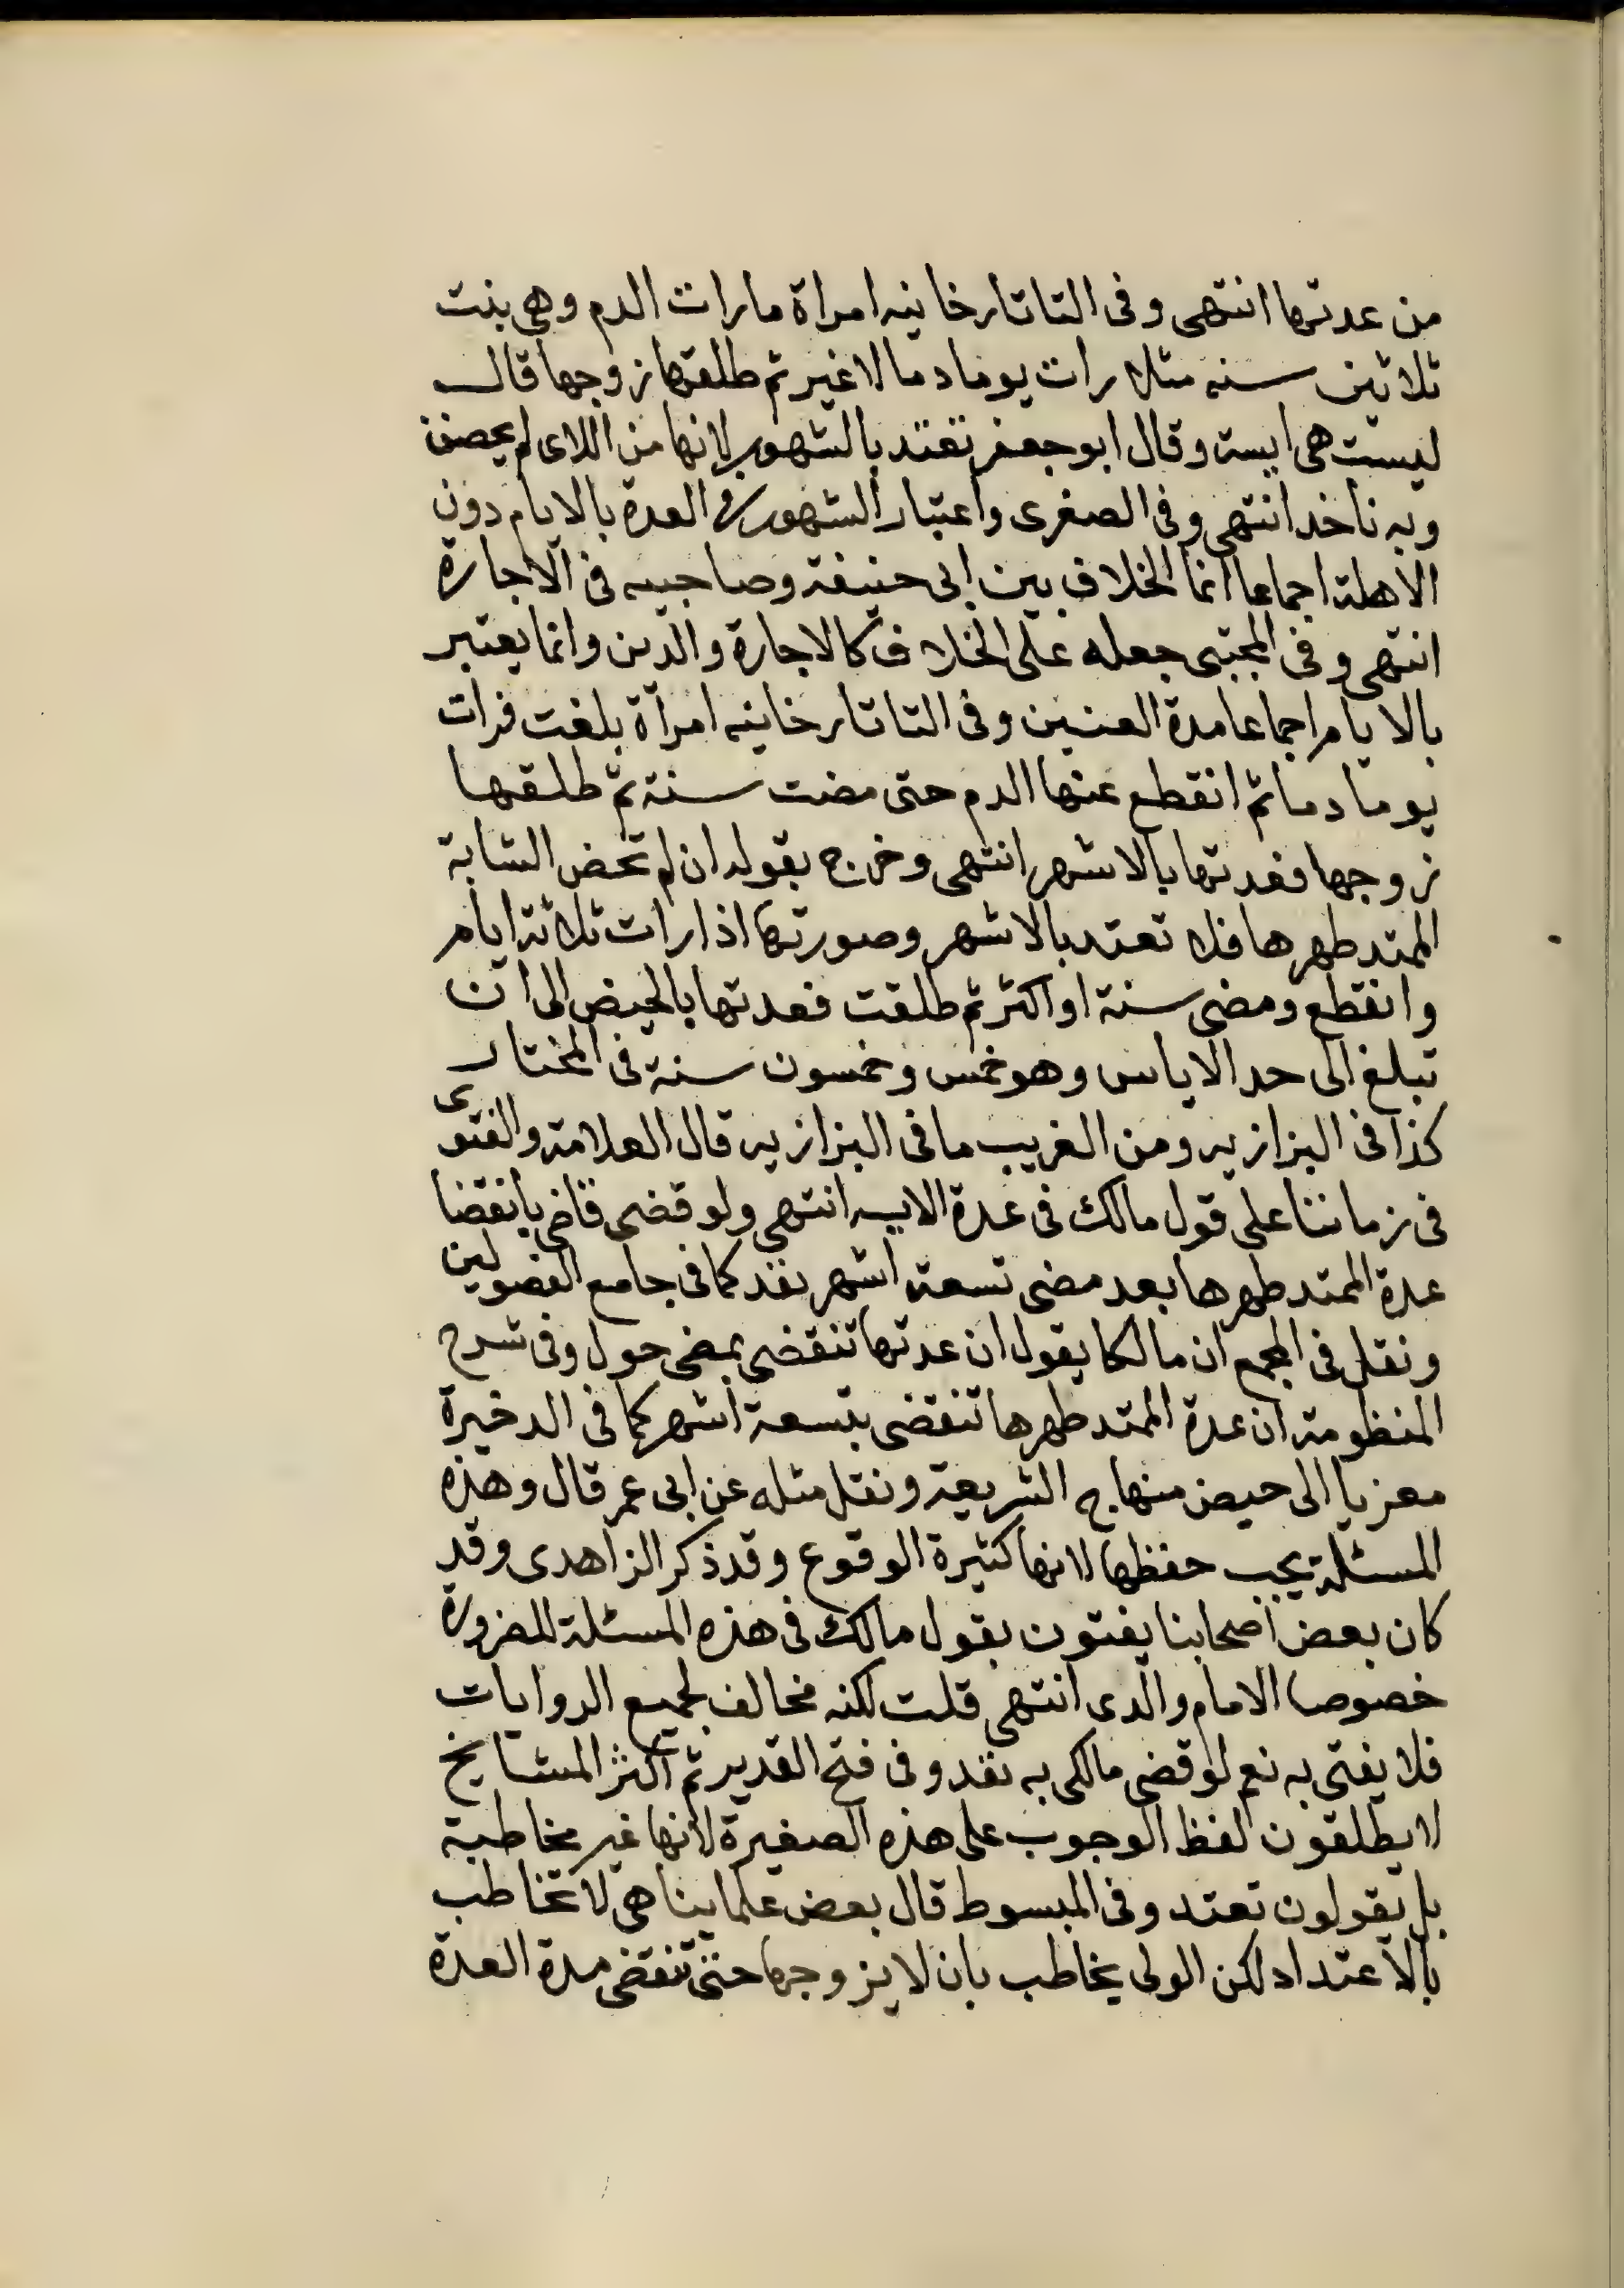 من عدتها انتهى وفى التاتارخانيه امراة مارات الدم وهى بنت
ثلاثين سنه مثلا رات يوما دما لا غير ثم طلقها زوجها قال
ليست هى ايسة وقال ابو جعفر تعتد بالشهور لانها من اللاى لم يحضن
وبه ناخد انتهى وفى الصغرى واعتبار الشهور فى العدة بالايام دون
الاهلة اجماعا انما الخلاف بين ابى حنيفة وصاحبيه فى الاجارة
انتهى وفى المجتبى جعله على الخلاف كالاجارة والدين وانما يعتبر
بالايام اجماعا مدة العنين وفى التاتارخانيه امراة بلغت فرات
يوما دما ثم انقطع عنها الدم حتى مضت سنة ثم طلقها
زوجها فعدتها بالاشهر انتهى وخرج بقوله ان لم تحض الشابة
الممتد طهرها فلا تعتد بالاشهر وصورتها اذا رات ثلاثة ايام
وانقطع ومضى سنة او اكثر ثم طلقت فعدتها بالحيض الى ان
تبلغ الى حد الاياس وهو خمس وخمسون سنة فى المختار
كذا فى البزازيه ومن الغريب ما فى البزازيه قال العلامة والفتوى
فى زماننا على قول مالك فى عدة الايسه انتهى ولو قضى قاض بانقضا
عدة الممتد طهرها بعد مضى تسعة اشهر نفد كما فى جامع الفصولين
ونقل فى المجمع ان مالكا يقول ان عدتها تنقضى بمضى حول وفى شرح
المنظومة ان عدة الممتد طهرها تنقضى بتسعة اشهر كما فى الدخيرة
معزيا الى حيض منهاج الشريعة ونقل مثله عن ابى عمر قال وهذه
المسئلة يجب حفظها لانها كثيرة الوقوع وقد ذكر الزاهدى وقد
كان بعض اصحابنا يفتون بقول مالك فى هذه المسئلة للضرورة
خصوصا الامام والدى انتهى قلت لكنه مخالف لجميع الروايات
فلا يفتى به نعم لو قضى مالكى به نفد وفى فتح القدير ثم اكثر المشايخ
لا يطلقون لفظ الوجوب على هذه الصغيرة لانها غير مخاطبة
بل يقولون تعتد وفى المبسوط قال بعض علماينا هى لا تخاطب
بالاعتداد لكن الولى يخاطب بان لا يزوجها حتى تنقضى مدة العدة